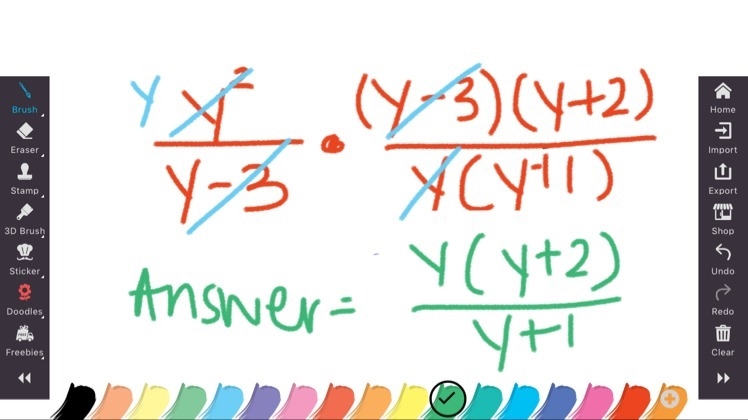 Brush
Eraser
Stamp
3D Brush
Sticker
Doodles
Freebies
y y²
y-3
•
(y-3)(y+2)
y(y+1)
Answer = y(y+2)
y+1
Home
Import
Export
Shop
Undo
Redo
Clear